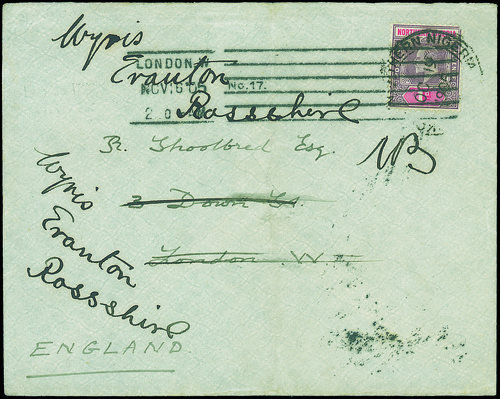 Wyvis
Evanton
Rossshire
LONDON.W
NOV.6 05
No.17.
NORTHERN NIGERIA
R. Shoolbred Esq.
3 Down St.
London. W
Wyvis
Evanton
Rossshire
ENGLAND